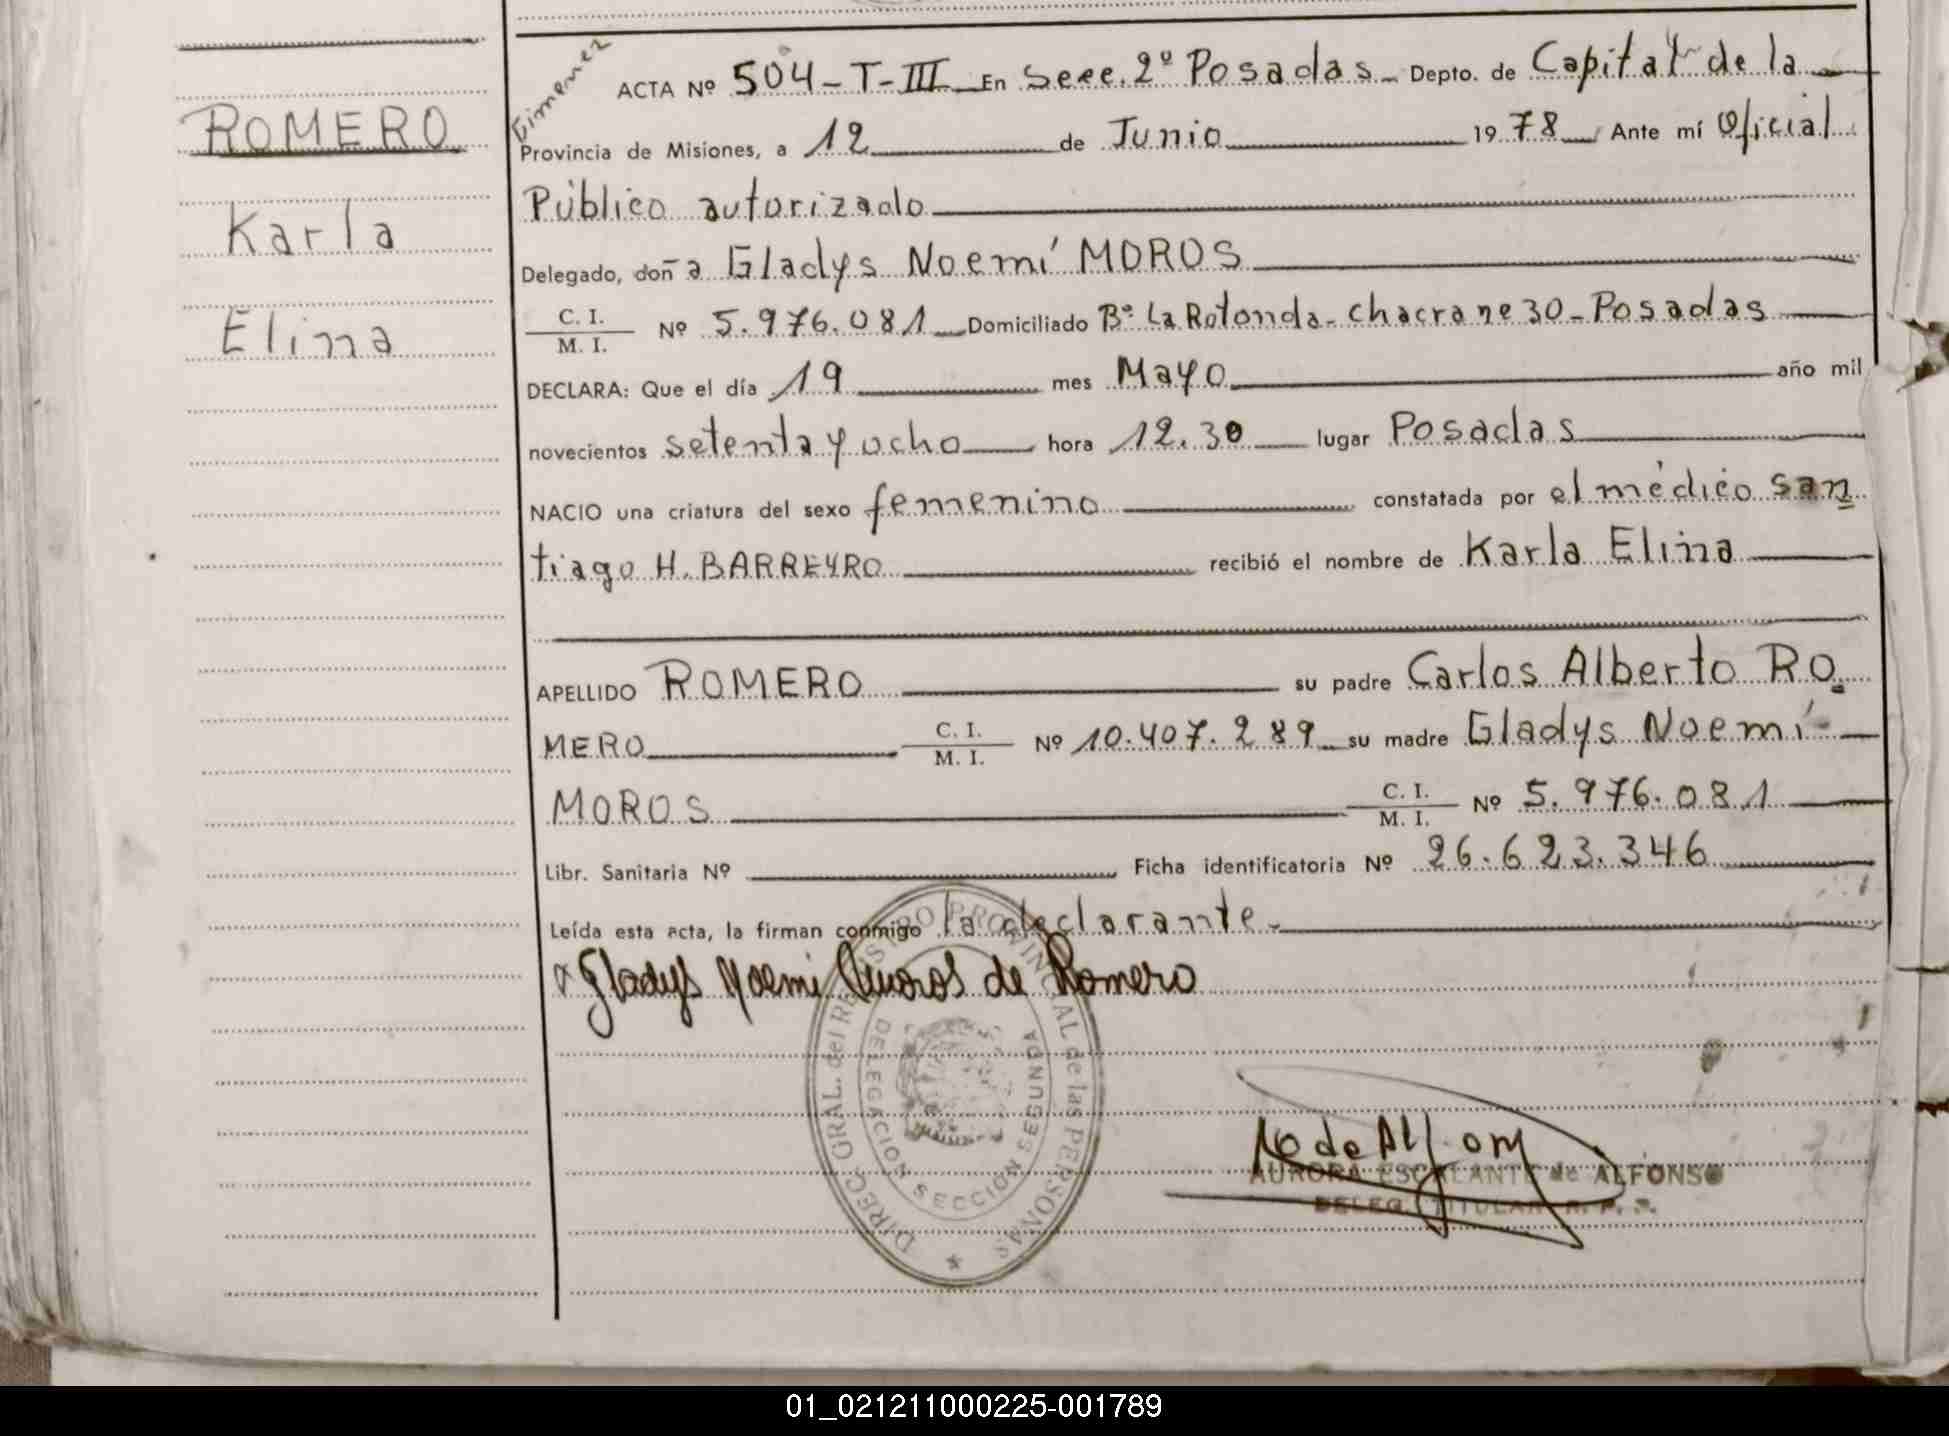 ROMERO
Karla
Elina
Gimenez
ACTA Nº 504-T-III En Secc. 2º Posadas Depto. de Capital de la
Provincia de Misiones, a 12 de Junio 1978 Ante mí Oficial
Público autorizado
Delegado, doña Gladys Noemí MOROS
C. I.
M. I. Nº 5.976.081 Domiciliado Bº La Rotonda - Chacra nº 30 - Posadas
DECLARA: Que el día 19 mes Mayo año mil
novecientos setenta y ocho hora 12.30 lugar Posadas
NACIO una criatura del sexo femenino constatada por el médico San
tiago H. BARREYRO recibió el nombre de Karla Elina
APELLIDO ROMERO su padre Carlos Alberto RO
MERO C. I.
M. I. Nº 10.407.289 su madre Gladys Noemí
MOROS C. I.
M. I. Nº 5.976.081
Libr. Sanitaria Nº Ficha identificatoria Nº 26.623.346
Leída esta acta, la firman conmigo la declarante
Gladys Noemi Moros de Romero
DIREC. GRAL. del REGISTRO PROVINCIAL de las PERSONAS
DELEGACION SECCIÓN SEGUNDA
AURORA ESCALANTE de ALFONSO
DELEG. TITULAR R. P. P.
01_021211000225-001789